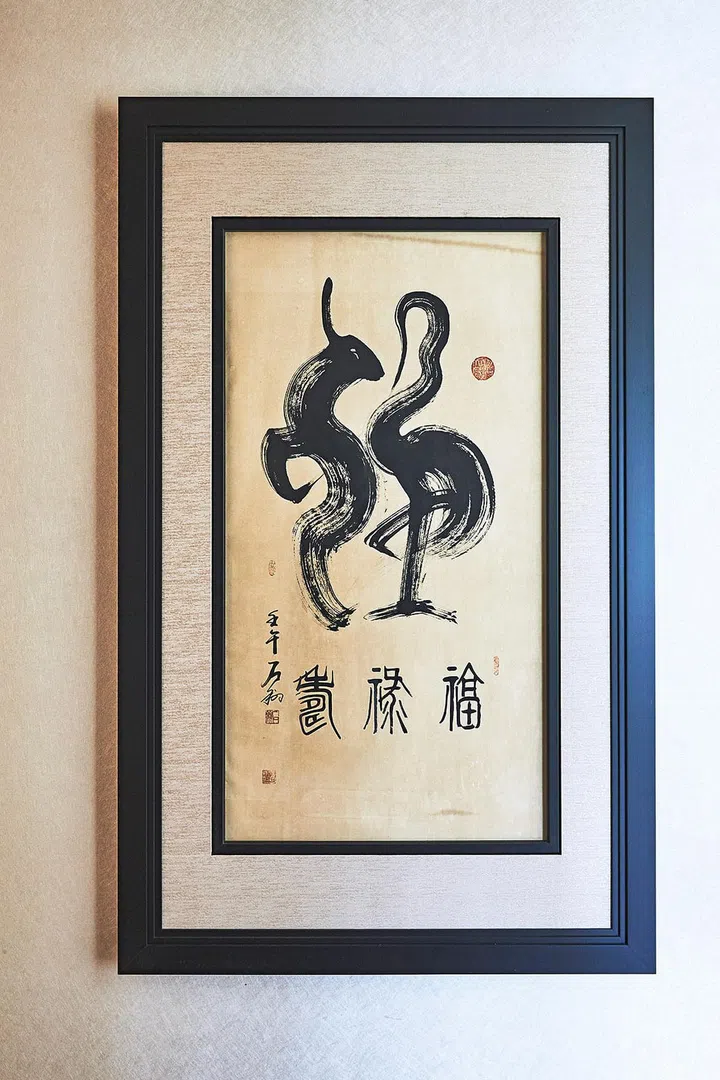 福祿壽
壬午 石翔